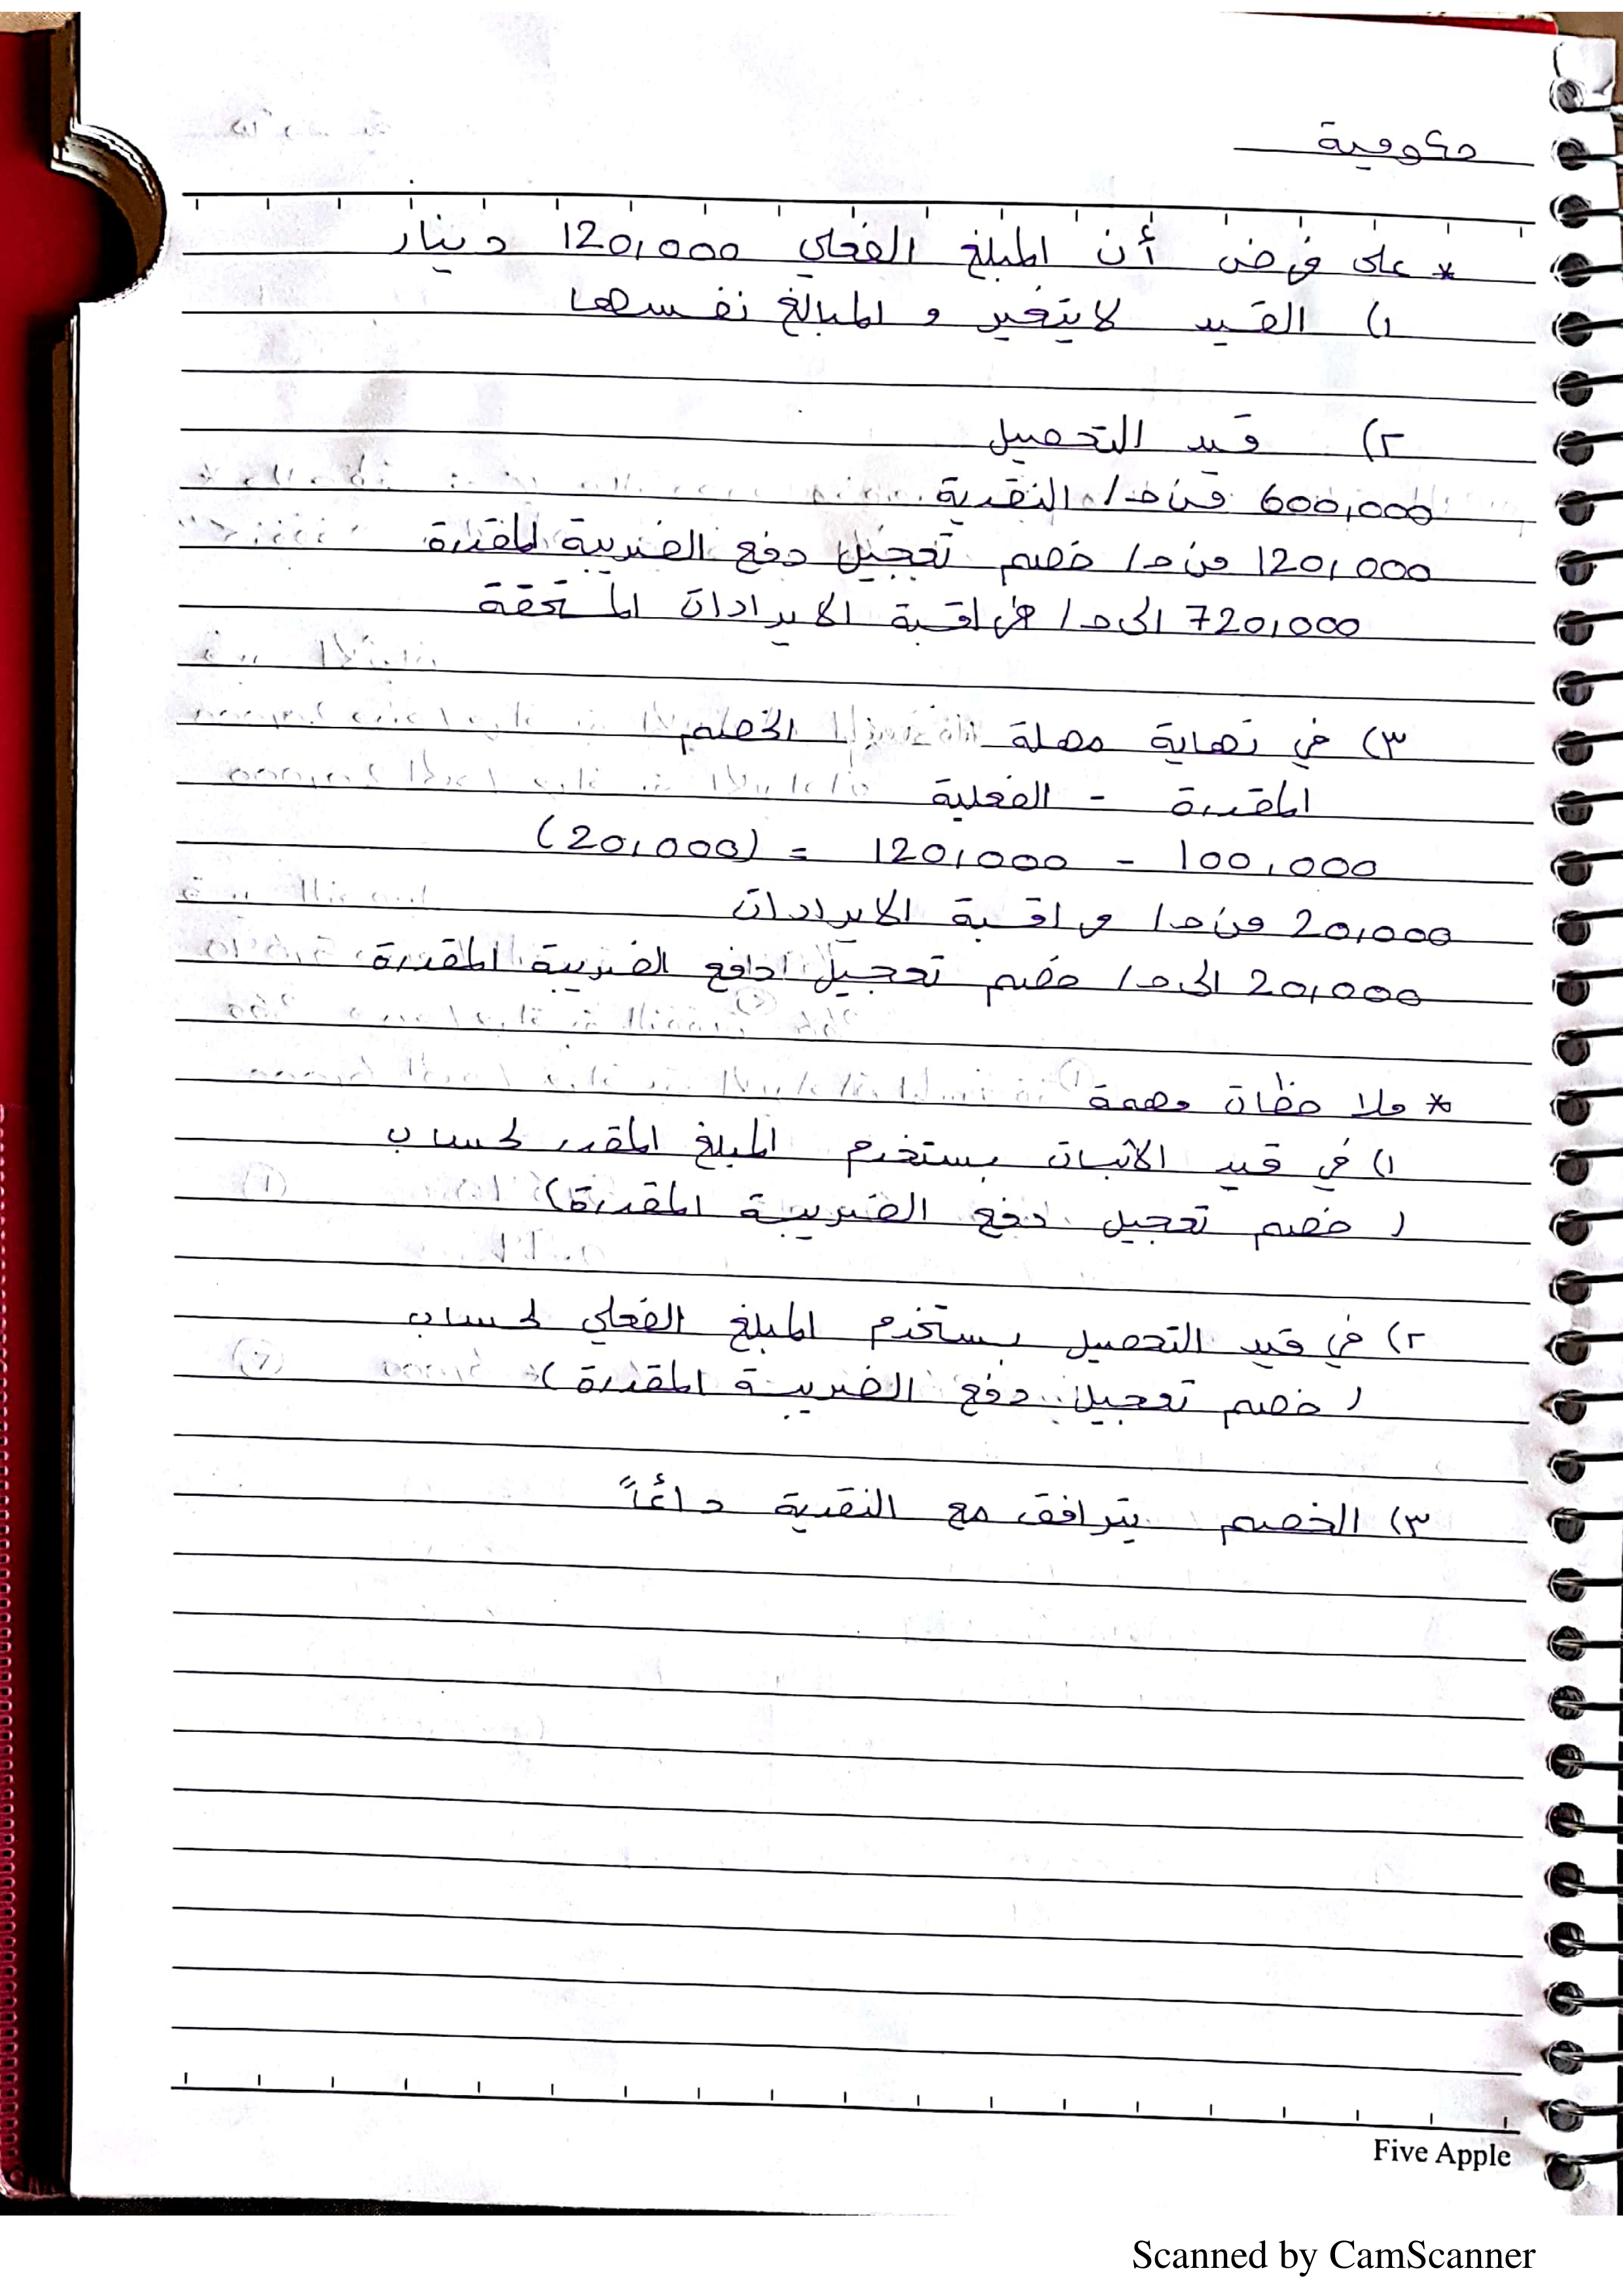 حكومية
* على فرض أن المبلغ الفعلي 120,000 دينار
١) القيد لا يتغير و المبالغ نفسها
٢) قيد التحصيل
600,000 من ح/ النقدية
120,000 من ح/ خصم تعجيل دفع الضريبة المقدرة
720,000 الى ح/ مراقبة الايرادات المستحقة
٣) في نهاية مهلة الخصم
المقدرة - الفعلية
100,000 - 120,000 = (20,000)
20,000 من ح/ مراقبة الايرادات
20,000 الى ح/ خصم تعجيل دفع الضريبة المقدرة
* ملاحظات مهمة
١) في قيد الاثبات يستخدم المبلغ المقدر لحساب
( خصم تعجيل دفع الضريبة المقدرة)
٢) في قيد التحصيل يستخدم المبلغ الفعلي لحساب
( خصم تعجيل دفع الضريبة المقدرة)
٣) الخصم يترافق مع النقدية دائماً
Five Apple
Scanned by CamScanner